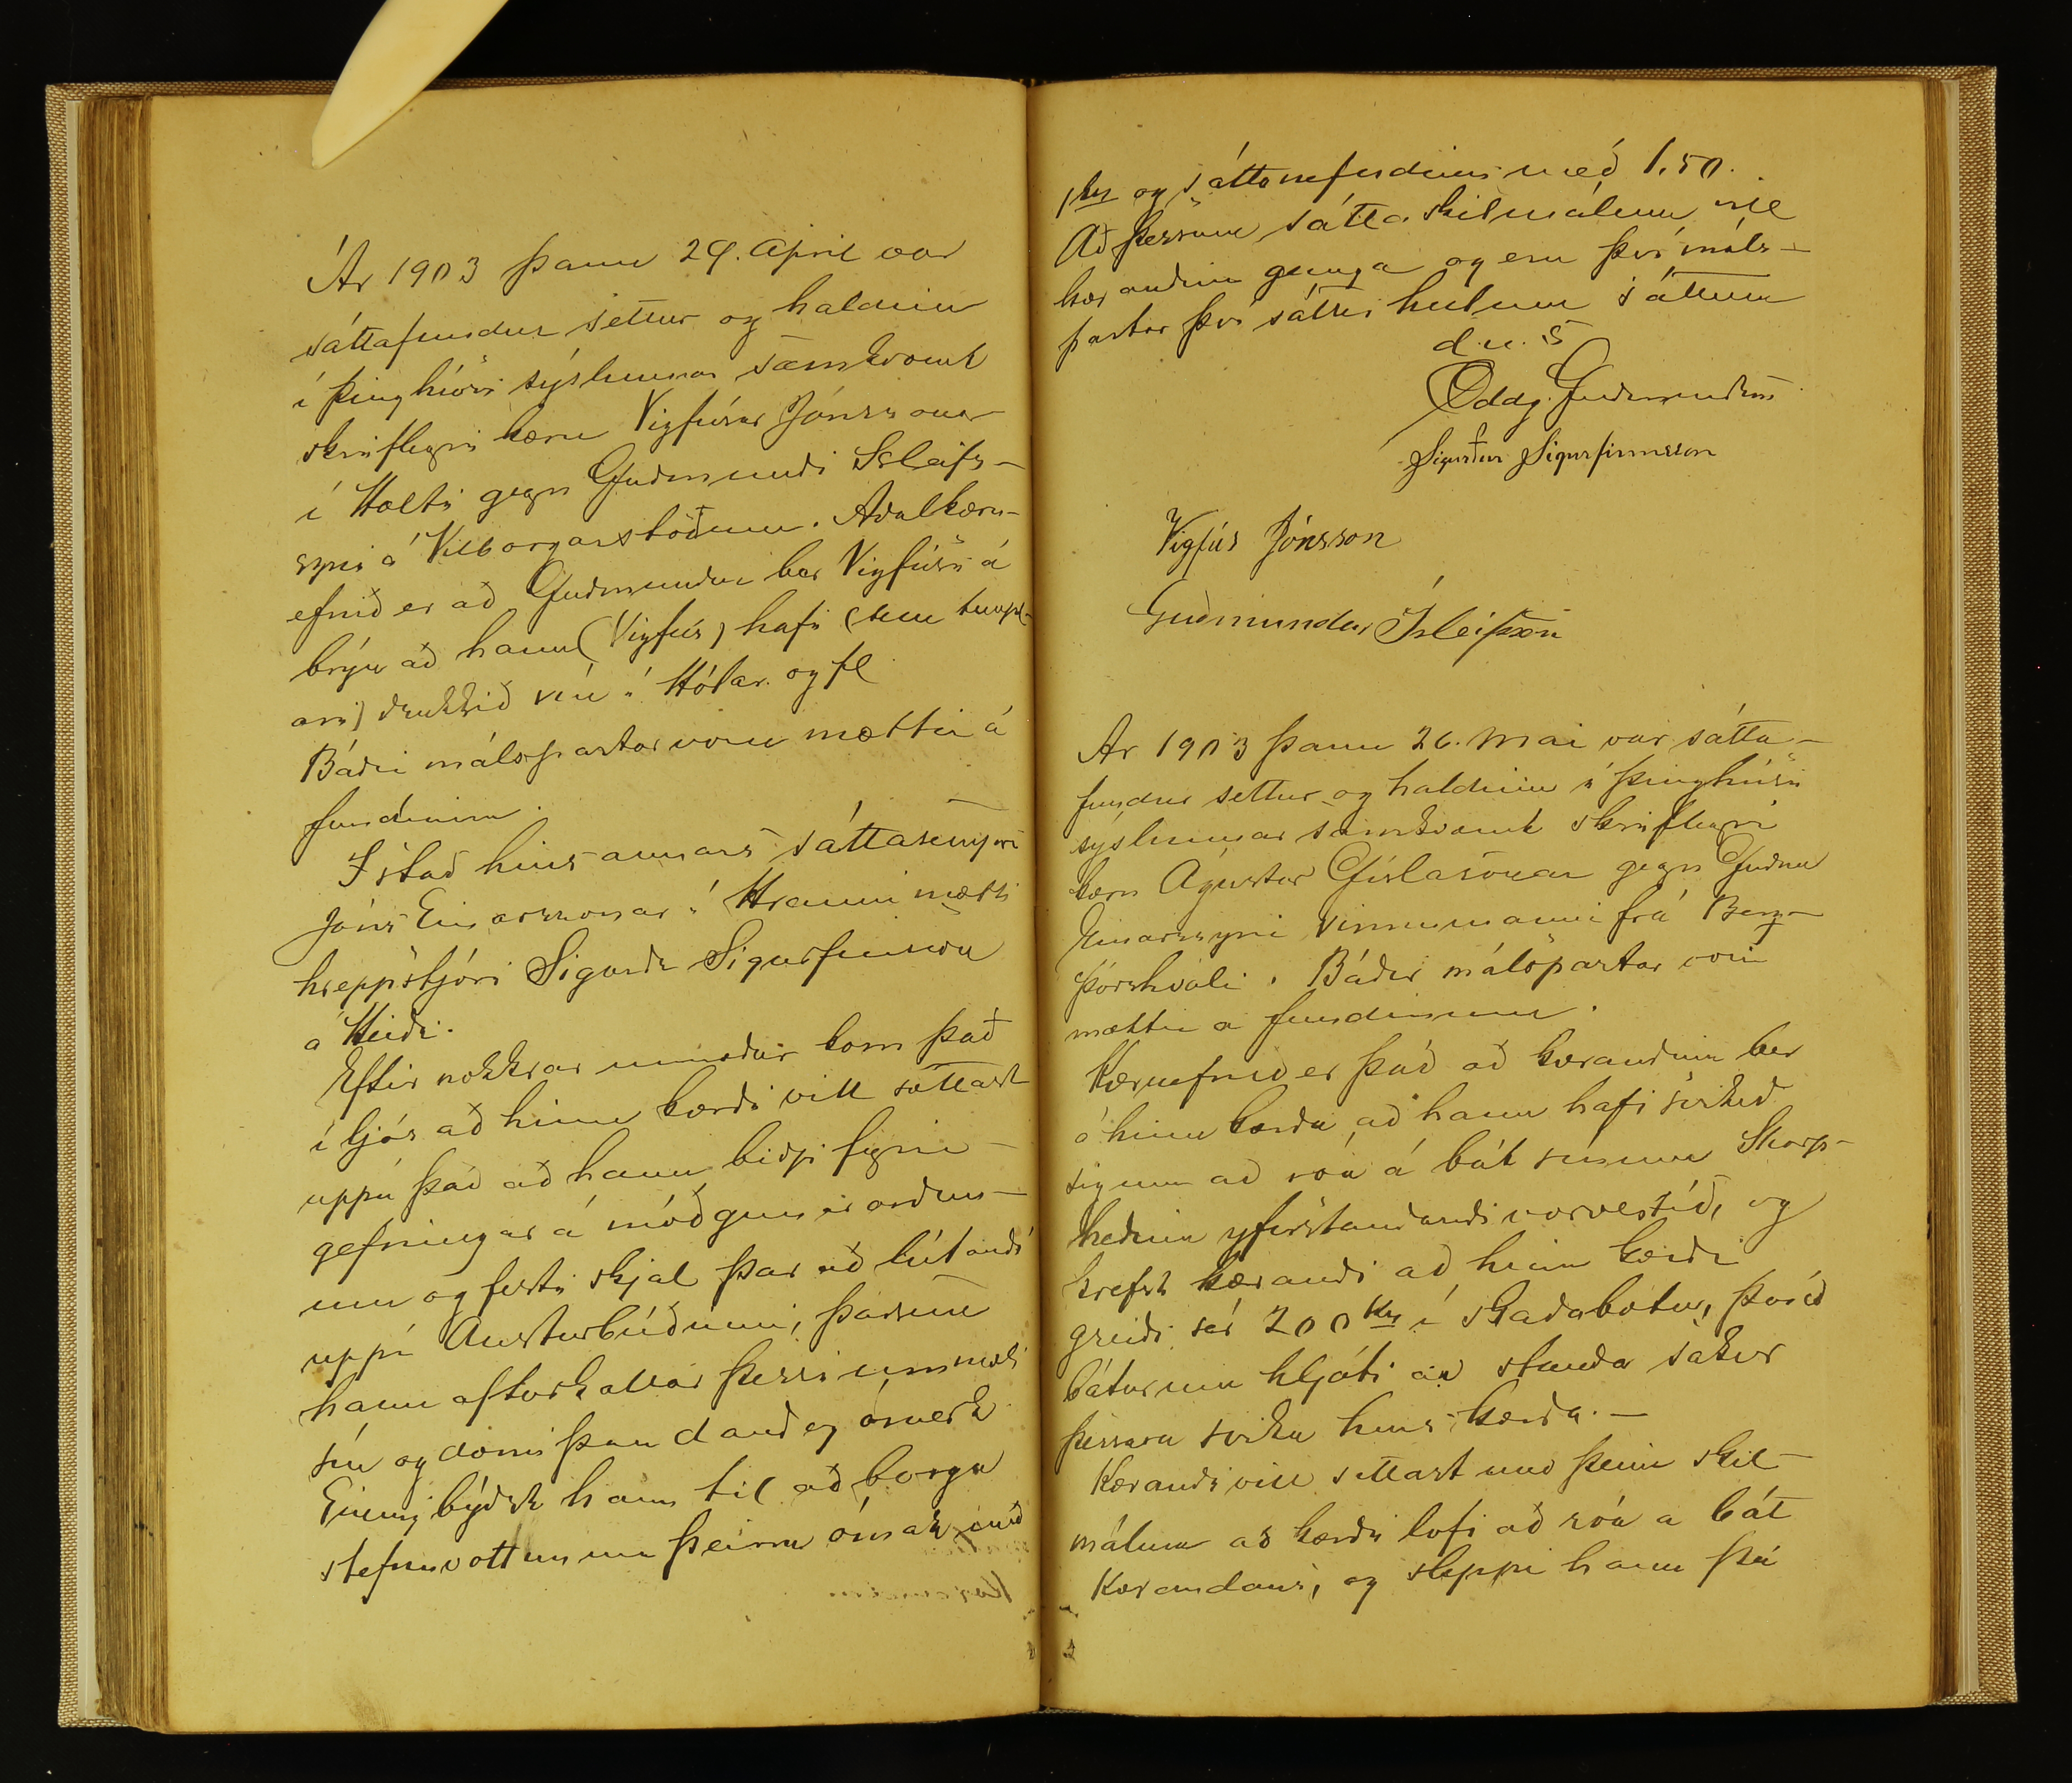 Ár 1903 þann 29. April var
sáttafundur settur og haldinn
í þinghúsi sýslunnar samkvæmt
skriflegri kæru Vigfúsar Jónssonar
í Holti gegn Guðmundi Isleifs-
syni á Vilborgarstöðum. Aðalkæru-
efnið er að Guðmundur ber Vigfúsi á
brýn að hann (Vigfús) hafi (sem templ-
ari) drukkið vín í Hólar. og fl
Báðir málspartar voru mættir á
fundinum.
I stað hins annars sáttasemjara
Jóns Einarssonar í Hrauni mætti
hreppstjóri Sigurdr Sigurfinnsson
á Heiði.
Eftir nokkrar umræður kom það
í ljós að hinn kærði vill sættast
uppá það að hann biðji fyrir-
gefningar á móðgunar orðun-
um og festi skjal þar að lútandi
uppí Austurbúðinni, þarsem
hann afturkallar þessi ummæli
sín og dæmi þau dauð og ómerk
Einnig býðst hann til að borga
stefnuvottunum þeirra ómak með
1 kr og sáttanefndinni með 1.50.
Að þessum sátta skilmálum vill
kærandinn ganga og eru því máls-
partar því sáttir heilum sáttum
d. u. s
Oddg. Guðmundsen
Sigurður Sigurfinnsson
Vigfús Jónsson
Guðmundur Ísleifsson
Ar 1903 þann 26. Mai var sátta-
fundur settur og haldinn í þinghúsi
sýslunnar samkvæmt skriflegri
kæru Agústar Gíslasonar gegn Guðna
Einarssyni vinnumanni frá Berg-
þórshvoli. Báðir málspartar voru
mættir a fundinum.
Kæruefnið er það að kærandinn ber
á hinn kærða að hann hafi svikið
sig um að róa á bát sínum Skarp-
heðinn yfirstandandi vorvertíð, og
krefst kærandi að hinn kærði
greiði sér 200 Kr í skaðabætur, því að
báturinn hljóti að standa sakir
þessara svika hins kærða. -
Kærandi vill sættast með þeim skil-
málum að kærði lofi að róa a bát
Kærandans, og sleppi hann þá